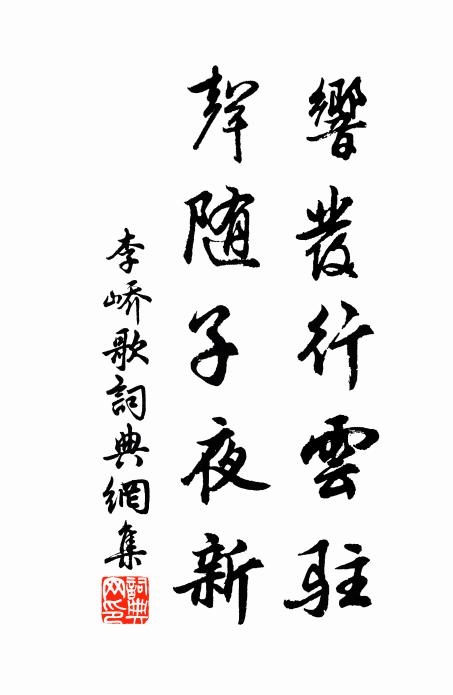 響發行雲駐
聲随子夜新
李嶠歌詞典網集
詞典網印